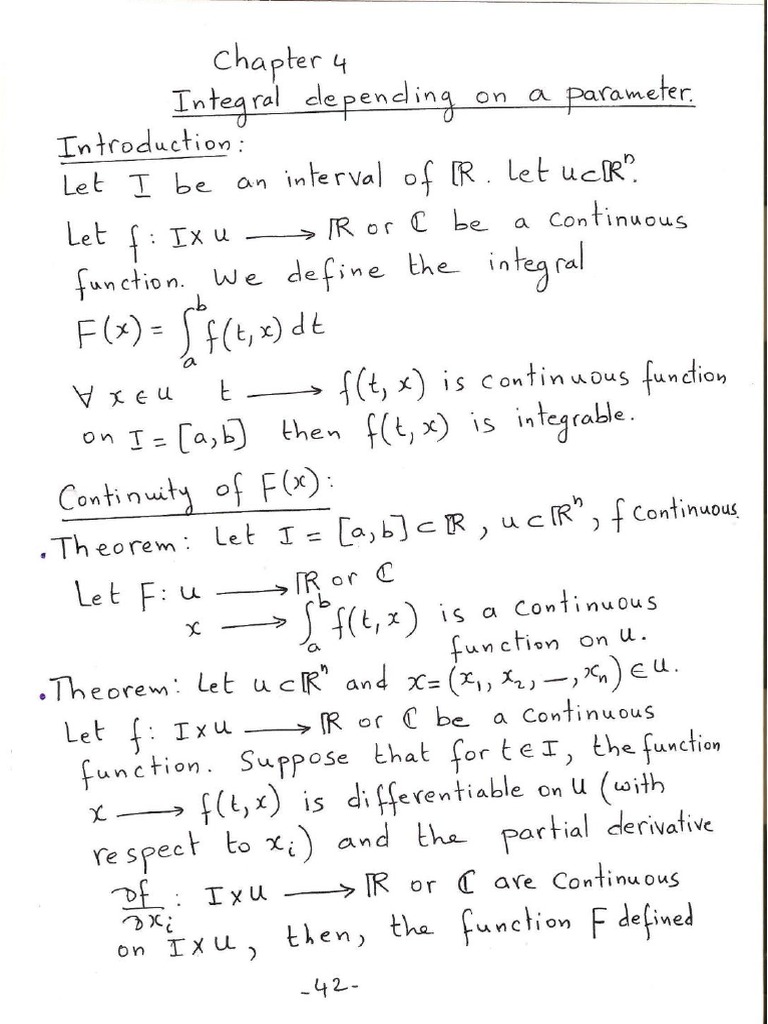 Chapter 4
Integral depending on a parameter.
Introduction:
Let I be an interval of ℝ. Let u⊂ℝⁿ.
Let f: I×u ⟶ ℝ or ℂ be a continuous
function. We define the integral
F(x) = ∫ₐᵇ f(t,x) dt
∀ x∈u t ⟶ f(t,x) is continuous function
on I = [a,b] then f(t,x) is integrable.
Continuity of F(x):
• Theorem: Let I = [a,b]⊂ℝ, u⊂ℝⁿ, f continuous
Let F: u ⟶ ℝ or ℂ
x ⟶ ∫ₐᵇ f(t,x) is a continuous
function on u.
• Theorem: Let u⊂ℝⁿ and x=(x₁, x₂, —, xₙ) ∈ u.
Let f: I×u ⟶ ℝ or ℂ be a continuous
function. Suppose that for t∈I, the function
x ⟶ f(t,x) is differentiable on u (with
respect to xᵢ) and the partial derivative
∂f/∂xᵢ : I×u ⟶ ℝ or ℂ are continuous
on I×u, then, the function F defined
-42-